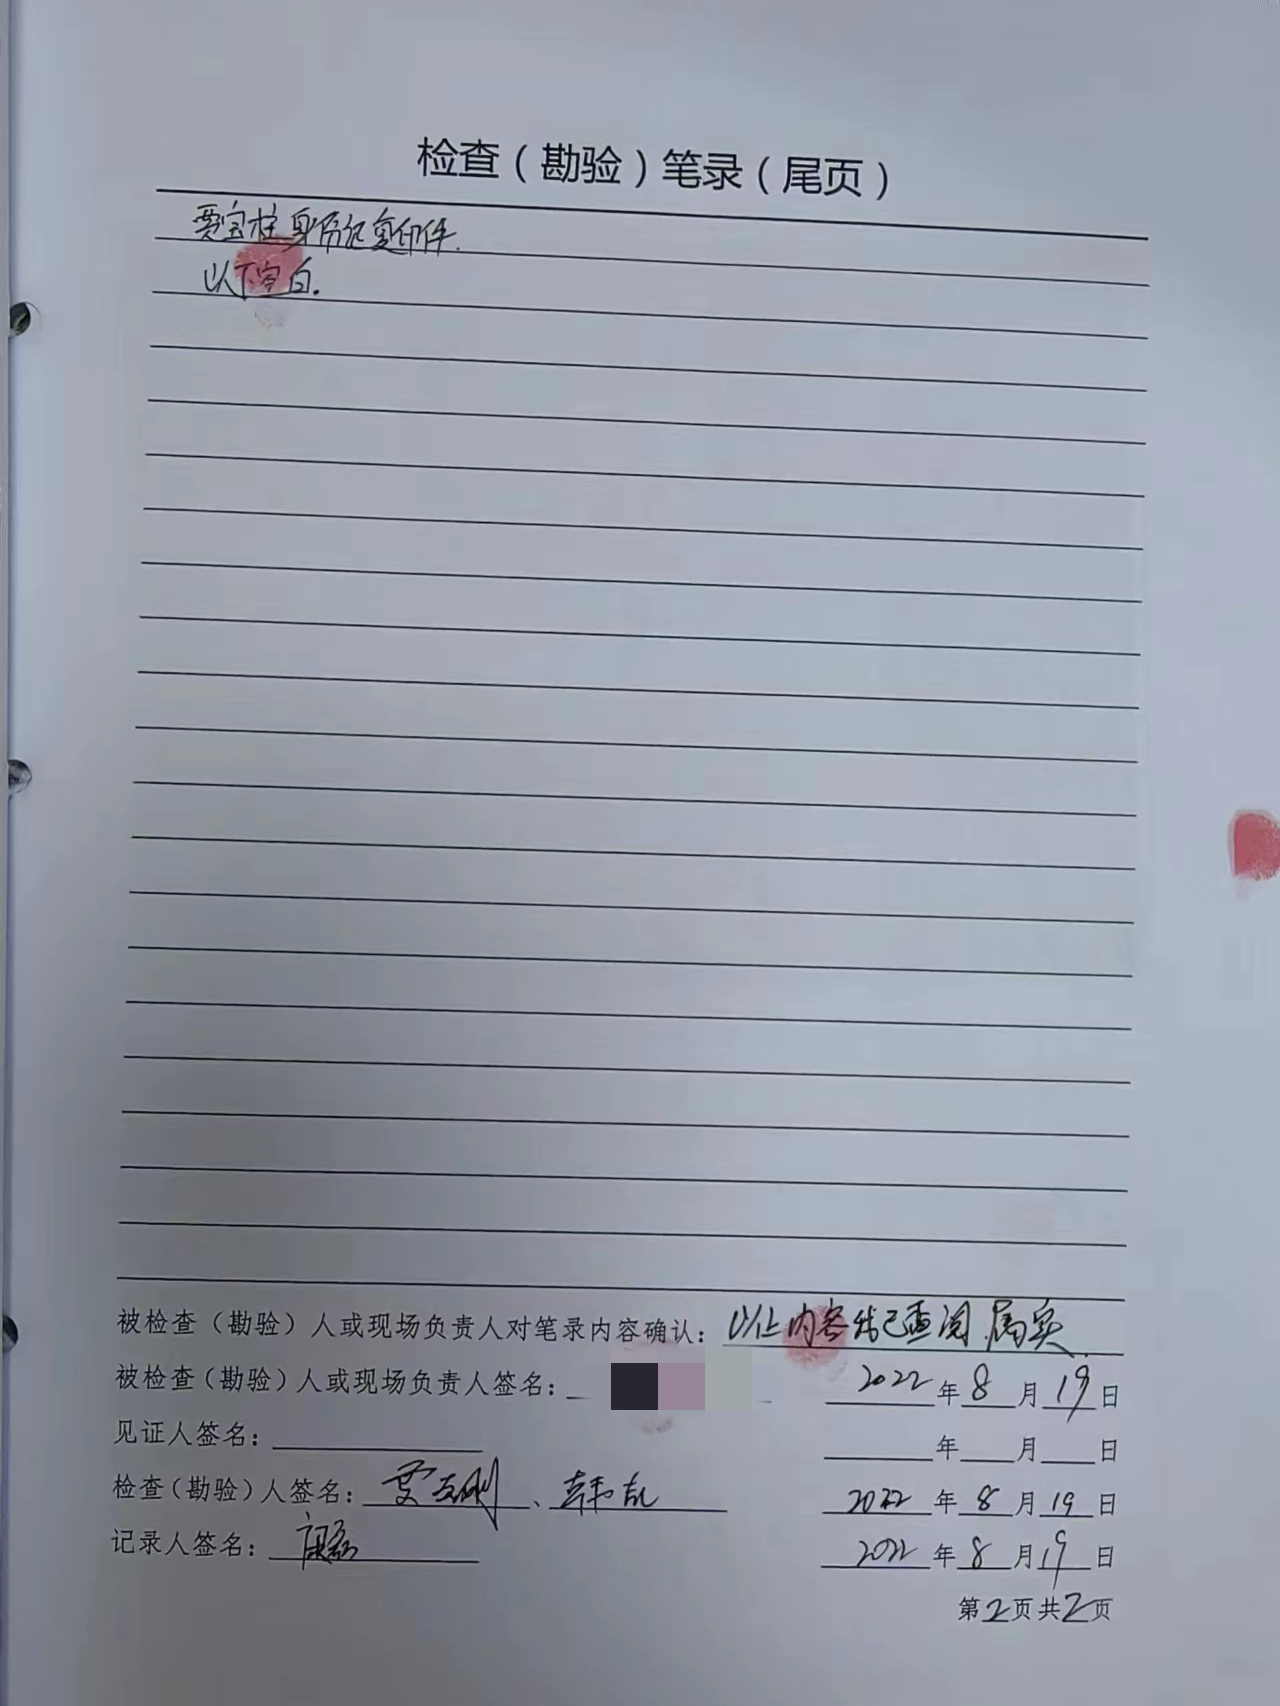 检查（勘验）笔录（尾页）
贾宝柱身份证复印件.
以下空白.
被检查（勘验）人或现场负责人对笔录内容确认：以上内容我已查阅.属实.
被检查（勘验）人或现场负责人签名： 2022年8月19日
见证人签名： 年 月 日
检查（勘验）人签名： 、韩 2022年8月19日
记录人签名： 2022年8月19日
第2页共2页